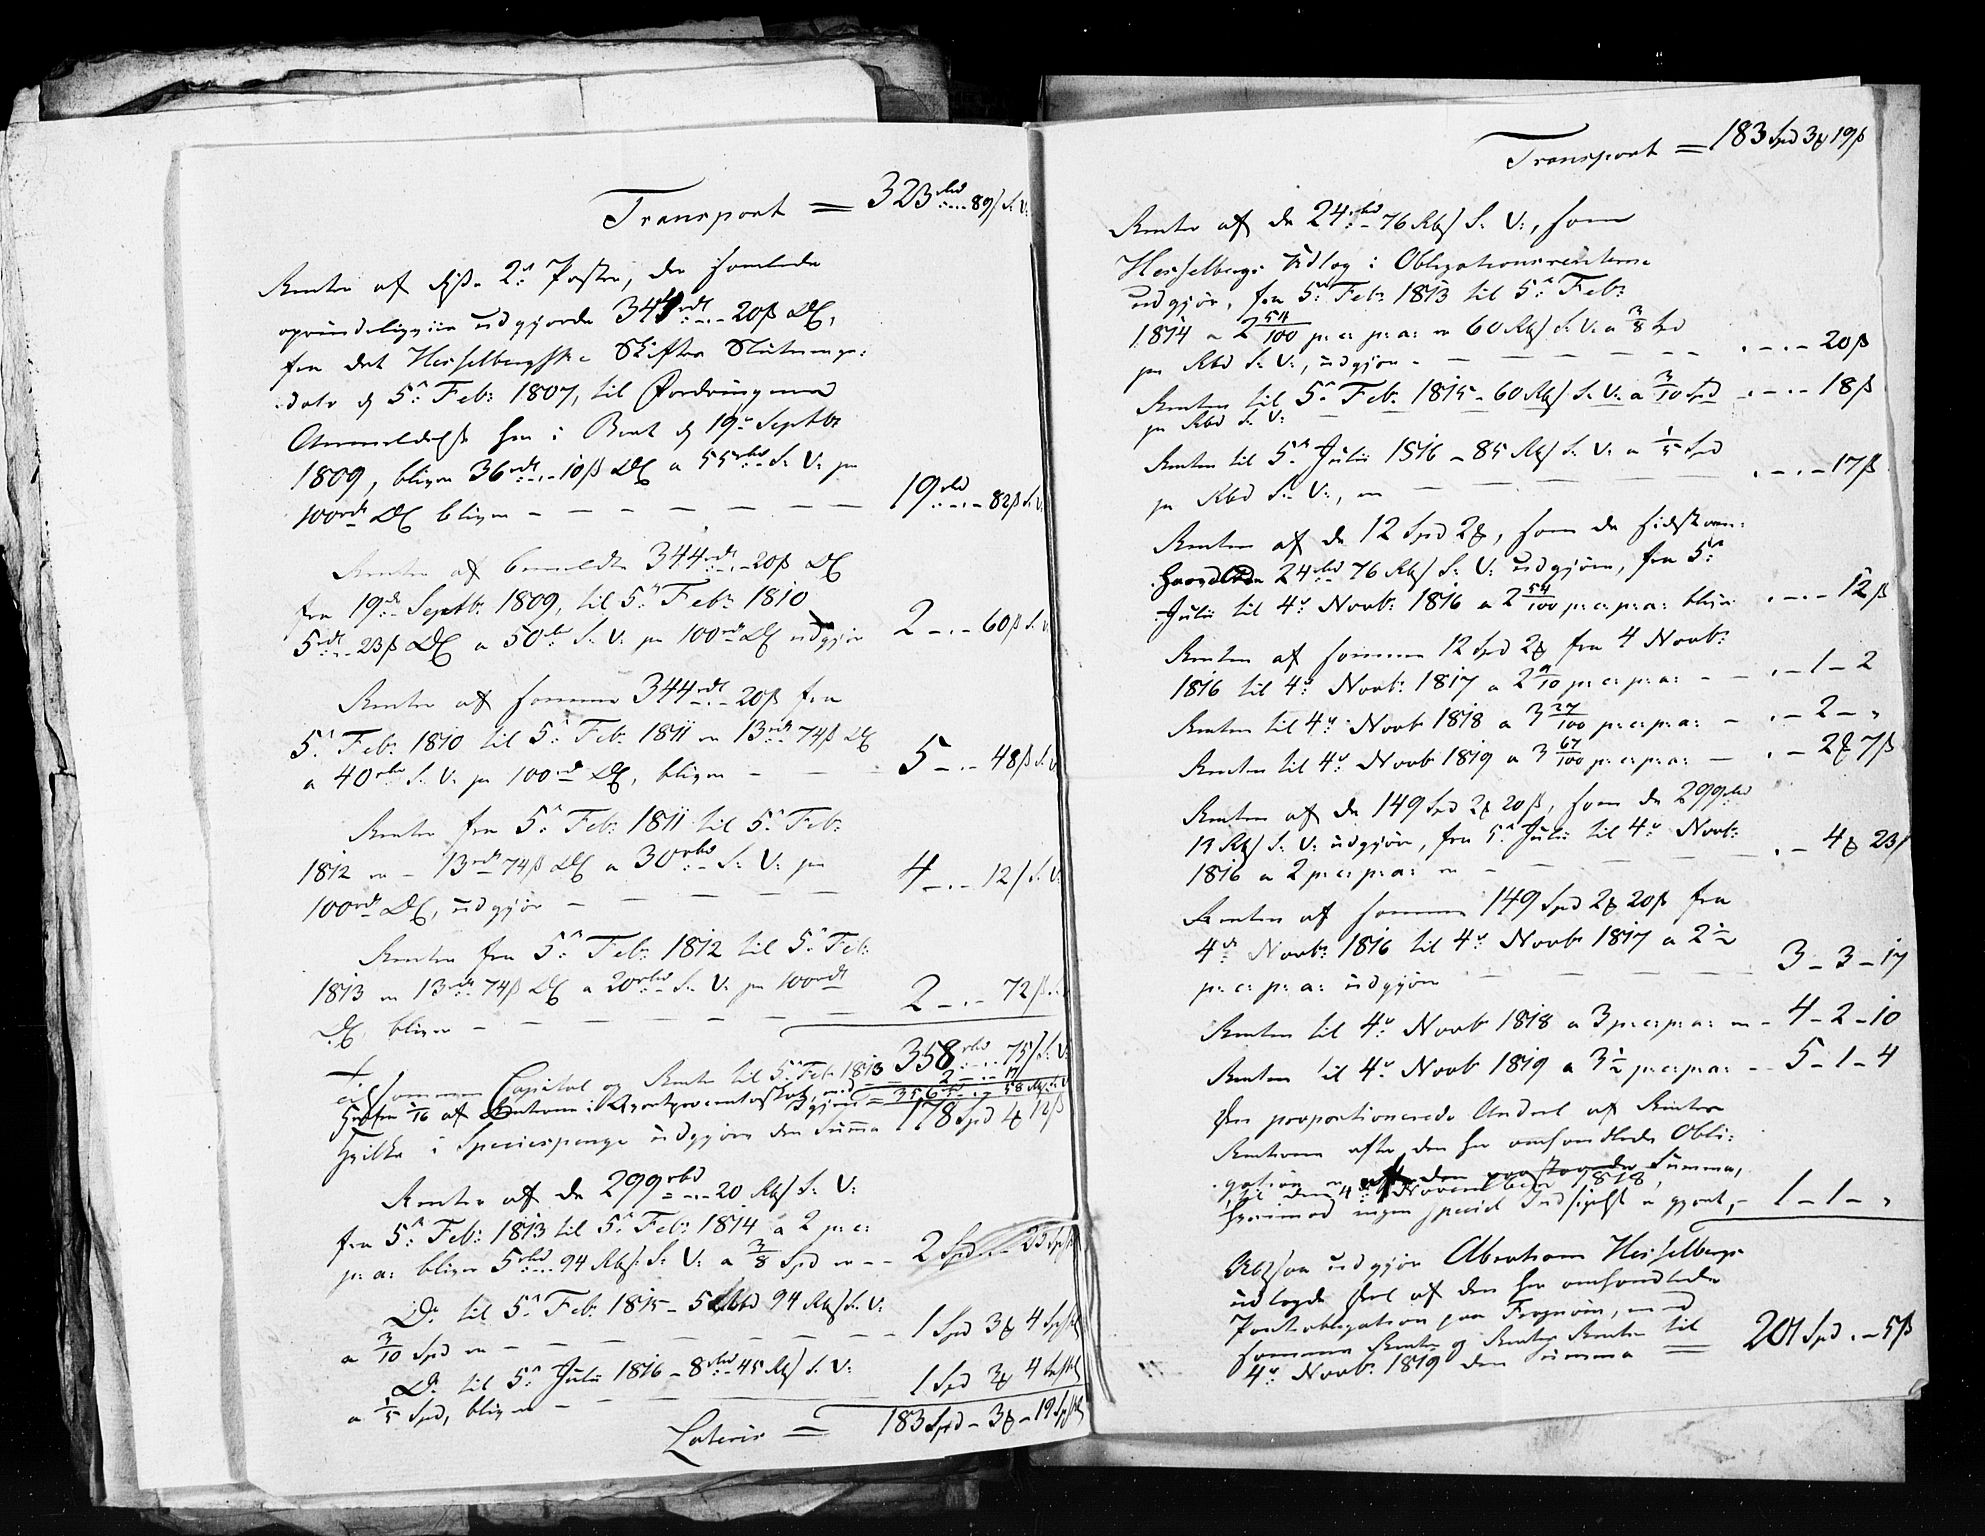 Transport = 323 rbd .-. 89ß S. V.
Renter af disse 2de Poster, der samlede
oprindeligviis udgjorde 344 rdl .-. 20ß DC,
fra det Hesselbergske Skiftes Slutnings-
dato d. 5te Feb: 1807, til Fordringernes
Anmeldelse her i Bout d. 19de Septbr
1809, bliver 36 rdl .-. 10ß DC a 55 rbd S. V. pr
100 rdl DC bliver - - - - - - - 19 rbd .-. 82ß S. V.
Renter af bemeldte 344 rdl .-. 20ß DC
fra 19de Septbr: 1809, til 5te Feb: 1810
5 rdl .-. 23ß DC a 50 rbd S. V. pr 100 rdl DC udgjør 2 -.- 60ß S. V.
Renter af samme 344 rdl .-. 20ß fra
5te Feb: 1810 til 5te Feb: 1811 er 13 rdl 74ß DC
a 40 rbd S. V. pr 100 rdl DC, bliver - - - 5 -.- 48ß S. V.
Renter fra 5te Feb: 1811 til 5te Feb:
1812 er - 13 rdl 74ß DC a 30 rbd S. V. pr
100 rdl DC, udgjør - - - - - 4 -.- 12ß S. V.
Renter fra 5te Feb: 1812 til 5te Feb:
1813 er 13 rdl 74ß DC a 20 rbd S. V. pr 100 rdl
DC bliver - - - - - - - 2 -.- 72ß
Tilsammen Capital og Renter til 5te Feb: 1813 358 rbd .-. 75ß S. V.
2 -.- 17
1/16 af Renterne i udgjør = 356 rbd .-. 58 Rbß S. V.
Hvilke i Speciespenge udgjør den Summa 178 Spd 4 # 12ß
Renter af de 299 rbd .-. 20 Rbß S. V.
fra 5te Feb: 1813 til 5te Feb: 1814 a 2 pr. c.
pr. a. bliver 5 rbd .-. 94 Rbß S. V. a 3/8 Spd er - - 2 Spd .-. 23 Spß
Do til 5te Feb: 1815 - 5 Rbd 94 Rbß S. V.
a 3/10 Spd er - - - - - - - 1 Spd 3 # 4 Spß
Do til 5te Julii 1816 - 8 rbd 45 Rbß S. V.
a 1/5 Spd, bliver - - - 1 Spd 3 # 4 Spß
Lateris = 183 Spd - 3 # - 19 Spß
Transport = 183 Spd 3 # 19ß
Renter af de 24 rbd - 76 Rbß S. V., som
Hesselbergs Udlag i Obligationsrenterne
udgjør, fra 5te Feb: 1813 til 5te Feb:
1814 a 2 54/100 pr. c. pr. a. er 60 Rbß S. V. a 3/8 Spd
pr Rbd S. V., udgjør - - - - - - . - . - 20ß
Renten til 5te Feb: 1815 - 60 Rbß S. V. a 3/10 Spd . - . - 18ß
pr Rbd S. V.
Renten til 5te Julii 1816 - 85 Rbß S. V. a 1/5 Spd
pr Rbd S. V., er - - - - - . - . - 17ß
Renten af de 12 Spd 2 #, som de sidstom-
24 rbd 76 Rbß S. V. udgjøre, fra 5te
Julii til 4de Novbr: 1816 a 2 54/100 pr. c. pr. a. bliver . - . - 12ß
Renten af samme 12 Spd 2 # fra 4 Novbr:
1816 til 4de Novbr: 1817 a 2 9/10 pr. c. pr. a. - - . - 1 - 2
Renten til 4de Novbr 1818 a 3 27/100 pr. c. pr. a. - . - 2 - "
Renten til 4de Novbr 1819 a 3 67/100 pr. c. pr. a. - . - 2 # 7ß
Renten af de 149 Spd 2 # 20ß, som de 299 rbd
13 Rbß S. V. udgjøre, fra 5te Julii til 4de Novbr:
1816 a 2 pr. c. pr. a. er - - - - - . - 4 # 23ß
Renten af samme 149 Spd 2 # 20ß fra
4de Novbr: 1816 til 4de Novbr 1817 a 2 1/2
pr. c. pr. a. udgjør - - - - - 3 - 3 - 17
Renten til 4de Novbr 1818 a 3 pr. c. pr. a. er - 4 - 2 - 10
Renten til 4de Novbr 1819 a 3 1/2 pr. c. pr. a. - - 5 - 1 - 4
Den proportionerede Andeel af Renters
Renterne efter den her omhandlede Obli-
gation er af den Summa,
til den 4de November 1818,
hvorimod ingen speciel Indsigelse er gjort, - 1 - 1 - "
Altsaa udgjør Abraham Hesselbergs
udlagde Deel af den her omhandlede
Pantobligation paa Frognøen, med
samme Renter og Renters Renter til
4de Novbr: 1819 den Summa = 201 Spd . - 5ß